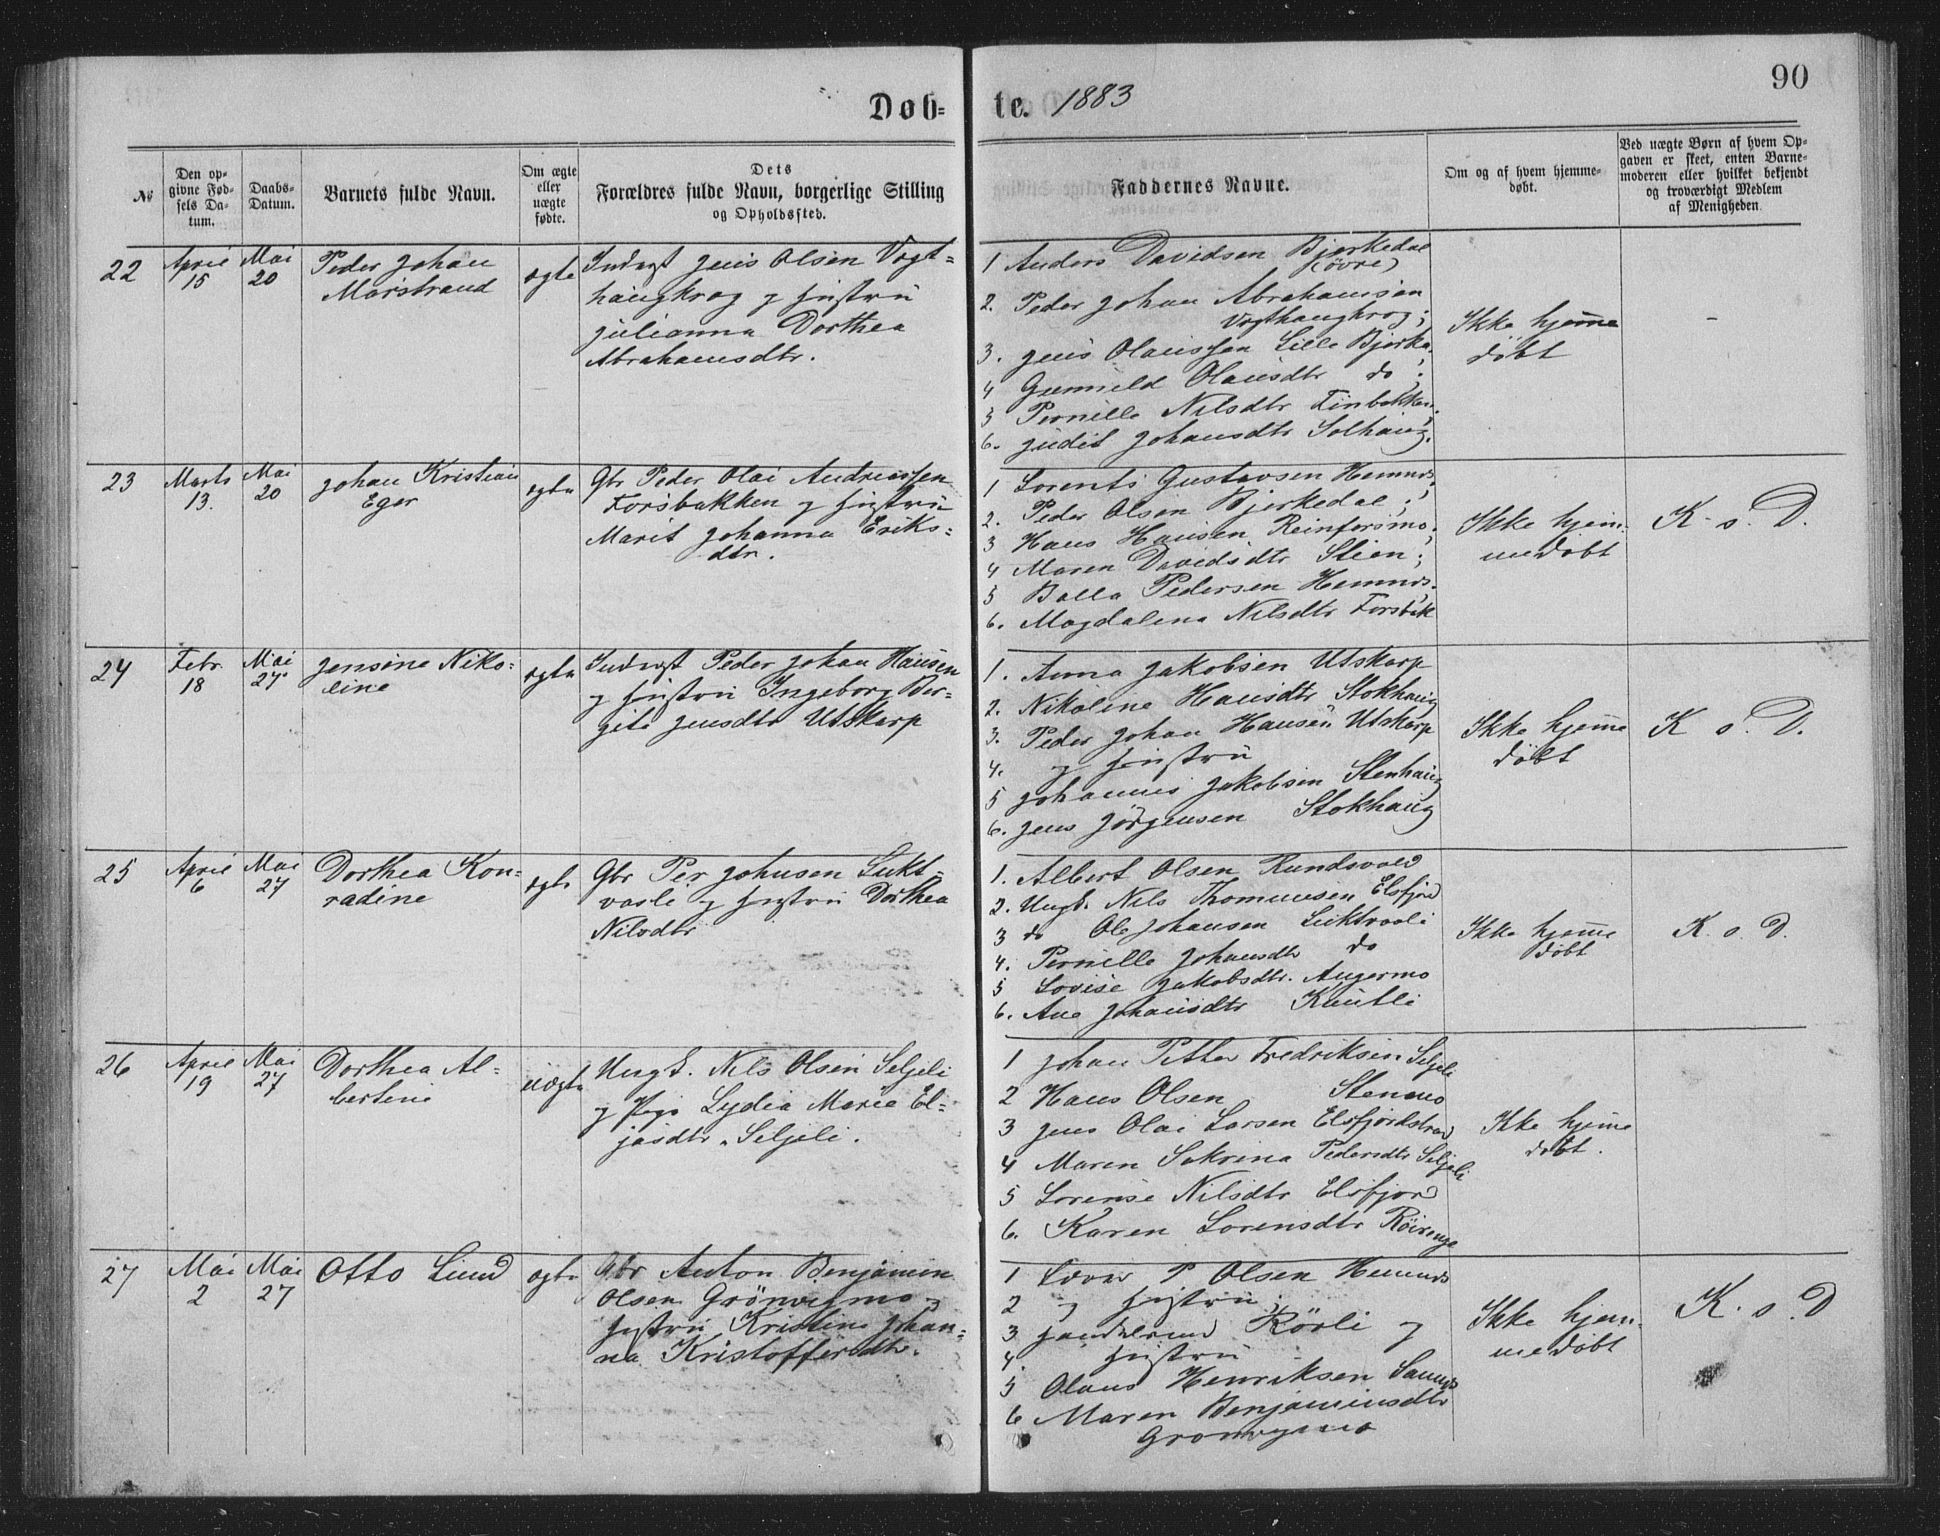 90
Døb-te. 1883
№
Den opgivne Fødsels Datum.
Daabs-Datum.
Barnets fulde Navn.
Om ægte eller uægte fødte.
Dets Forældres fulde Navn, borgerlige Stilling og Opholdssted.
Faddernes Navne.
Om og af hvem hjemmedøbt.
Ved uægte Børn af hvem Opgaven er skeet, enten Barnemoderen eller hvilket bekjendt og troværdigt Medlem af Menigheden.
22
April 15
Mai 20
Peder Johan
Marstrand
ægte
Inderst Jens Olsen Vogt-
haugkrog og hustru
Julianna Dorthea
Abrahamsdtr.
1 Anders Davidsen Bjerkedal
(øvre)
2. Peder Johan Abrahamsen
Vogthaugkrog;
3. Jens Olaussen Lille Bjerka;
4 Gunneld Olausdtr do;
5 Pernille Nilsdtr Finbakken;
6. Judit Johansdtr Solhaug.
Ikke hjemme
døbt
-
23
Marts 13.
Mai 20
Johan Kristian
Eger
ægte
Gbr Peder Olai Andreassen
Forsbakken og hustru
Marit Johanna Eriks-
dtr.
1 Lorents Gustavsen Hemnes;
2. Peder Olsen Bjerkedal;
3 Hans Hansen Reinforsmo;
4 Maren Davidsdtr Stien;
5 Balla Pedersen Hemnes;
6. Magdalena Nilsdtr Forsbak
Ikke hjem-
medøbt
K. s. D.
24
Febr. 18
Mai 27
Jensine Niko-
line
ægte
Inderst Peder Johan Hansen
og hustru Ingeborg Ber-
gite Jensdtr Utskarp
1. Anna Jakobsen Utskarp
2. Nikoline Hansdtr Stokhaug
3. Peder Johan Hansen Utskarp
4. og hustru
5 Johannes Jakobsen Stenhaug
6. Jens Jörgensen Stokhaug
Ikke hjemme
døbt
K s. D.
25
April 6
Mai 27
Dorthea Kon-
radine
ægte
Gbr Per Johnsen Lukt-
vasli og hustru Dorthea
Nilsdtr
1. Albert Olsen Rundsvold
2. Ungk. Nils Thommesen Elsfjord
3 do Ole Johansen Luktvasli
4. Pernille Johansdtr do
5 Lovise Jakobsdtr. Angermo
6. Ane Johansdtr Knutli
Ikke hjemme
døbt
K. s. D.
26
April 19
Mai 27
Dorthea Al-
bertine
uægte
Ungk. Nils Olsen Seljeli
og Pige Lydia Marie El-
jasdtr. Seljeli.
1 Johan Petter Fredriksen Seljeli
2 Hans Olsen Stenmo
3 Jens Olai Larsen Elsfjordstrand
4 Maren Sakrina Pedersdtr Seljeli
5 Lorense Nilsdtr Elsfjord
6. Karen Lorensdtr
Ikke hjemme
døbt.
27
Mai 2
Mai 27
Otto Lund
ægte
Gbr Anton Benjamin
Olsen Grönvigmo og
hustru Kristine Johan-
na Kristoffersdtr.
1 P. Olsen Hemnes
2 og hustru;
3 Handelsmand Rörli og
4 hustru
5 Olaus Henriksen
6 Maren Benjaminsdtr
Gronvigmo
Ikke hjem-
medøbt
K. s. D